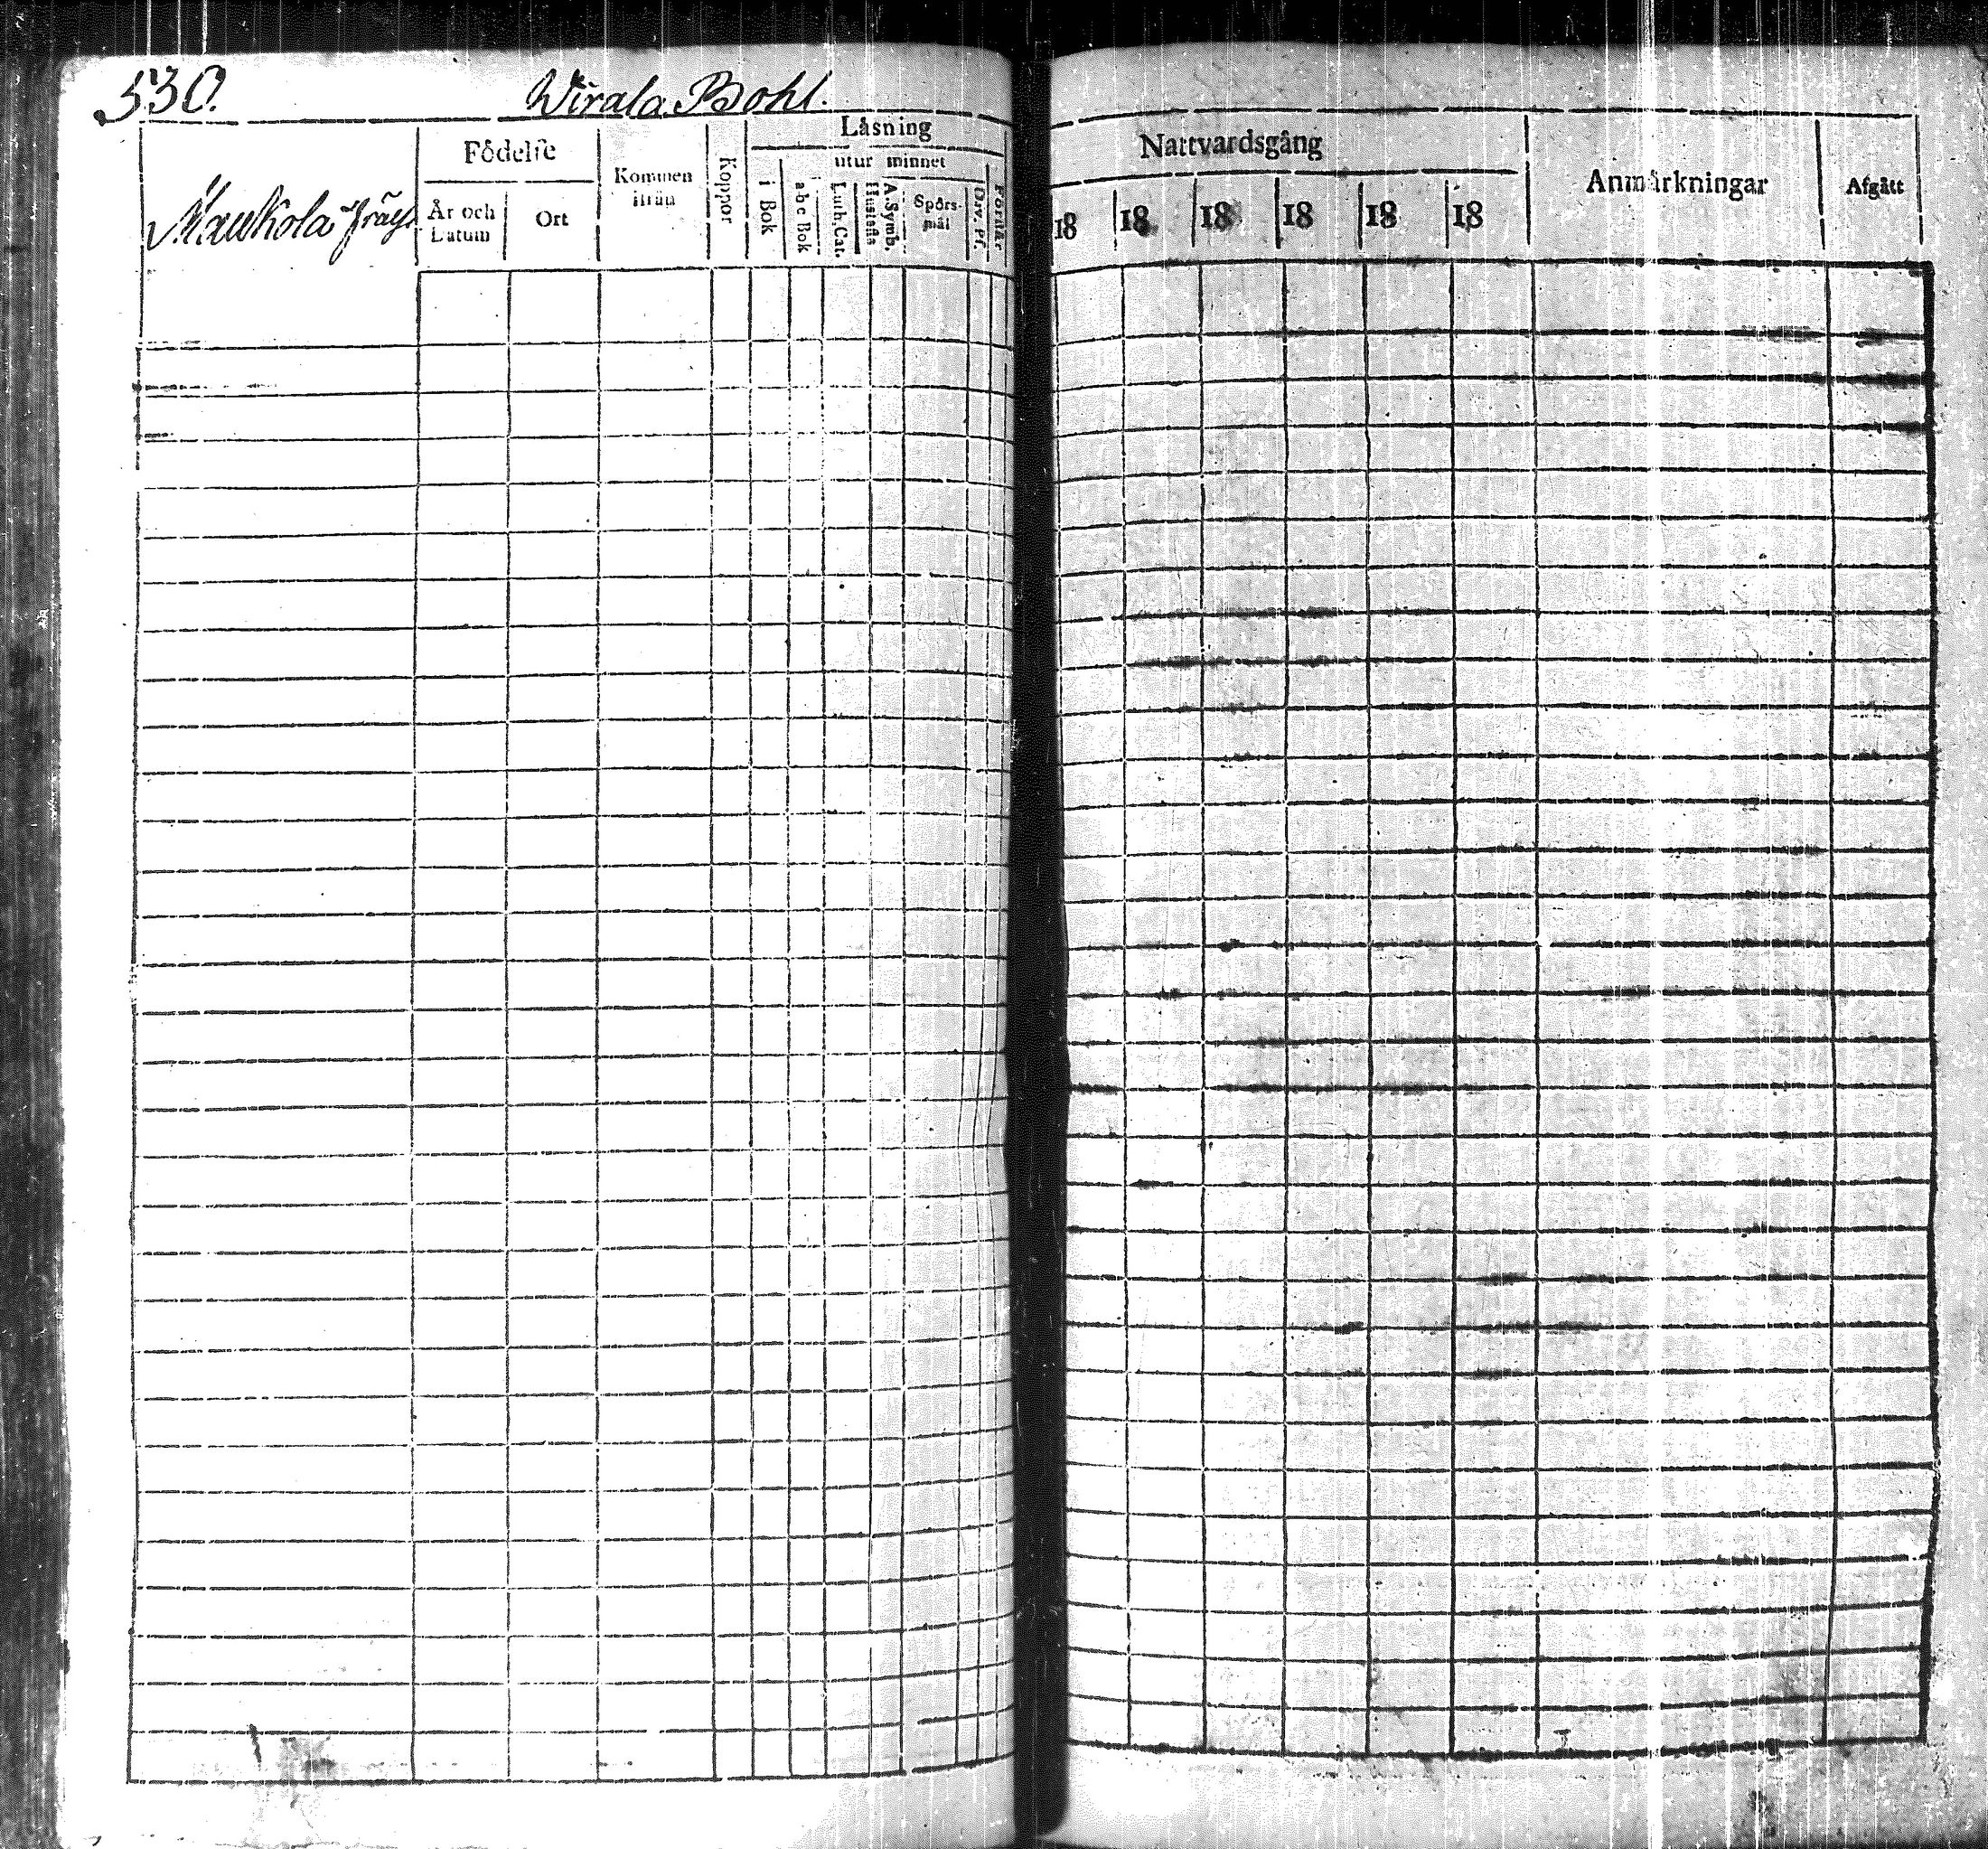 530.
Wirala Bohl.
Maukola
Födelse
År och Datum
Ort
Kommen ifrån
Koppor
Läsning
utur minnet
i Bok
abc Bok
Luth. Cat.
A. Symb. Hustafla
Spörsmål
Dav. Ps.
Förstår
Nattvardsgång
18 18 18 18 18 18
Anmärkningar
Afgått